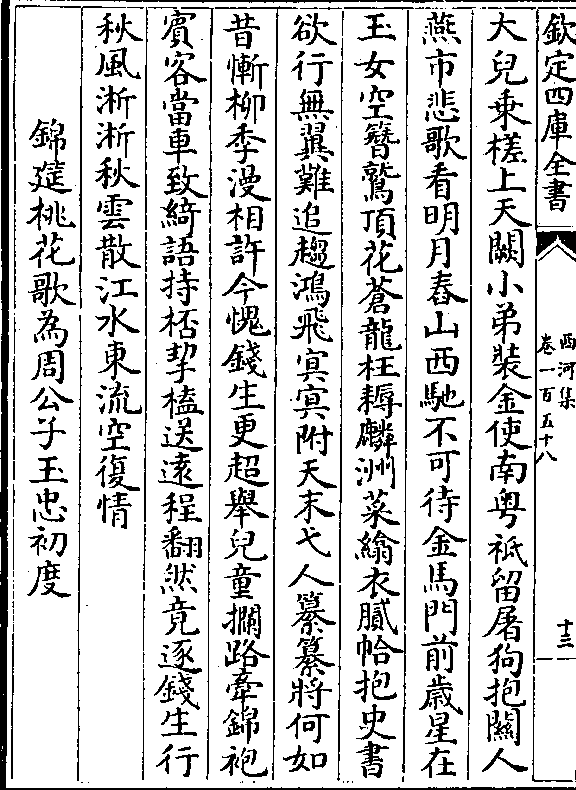 欽定四庫全書
西河集
卷一百五十八
十三
大兒乗槎上天闕小弟裝金使南粤祗留屠狗抱關人
燕市悲歌看明月舂山西馳不可待金馬門前歲星在
玉女空簪鷲頂花蒼龍枉耨麟洲菜縞衣膩帢抱史書
欲行無翼難追趨鴻飛冥冥附天末弋人纂纂將何如
昔慚柳季漫相許今愧錢生更超舉兒童攔路牽錦袍
賓客當車致綺語持桮挈榼送逺程翻然竟逐錢生行
秋風淅淅秋雲散江水東流空復情
錦筵桃花歌為周公子玉忠初度